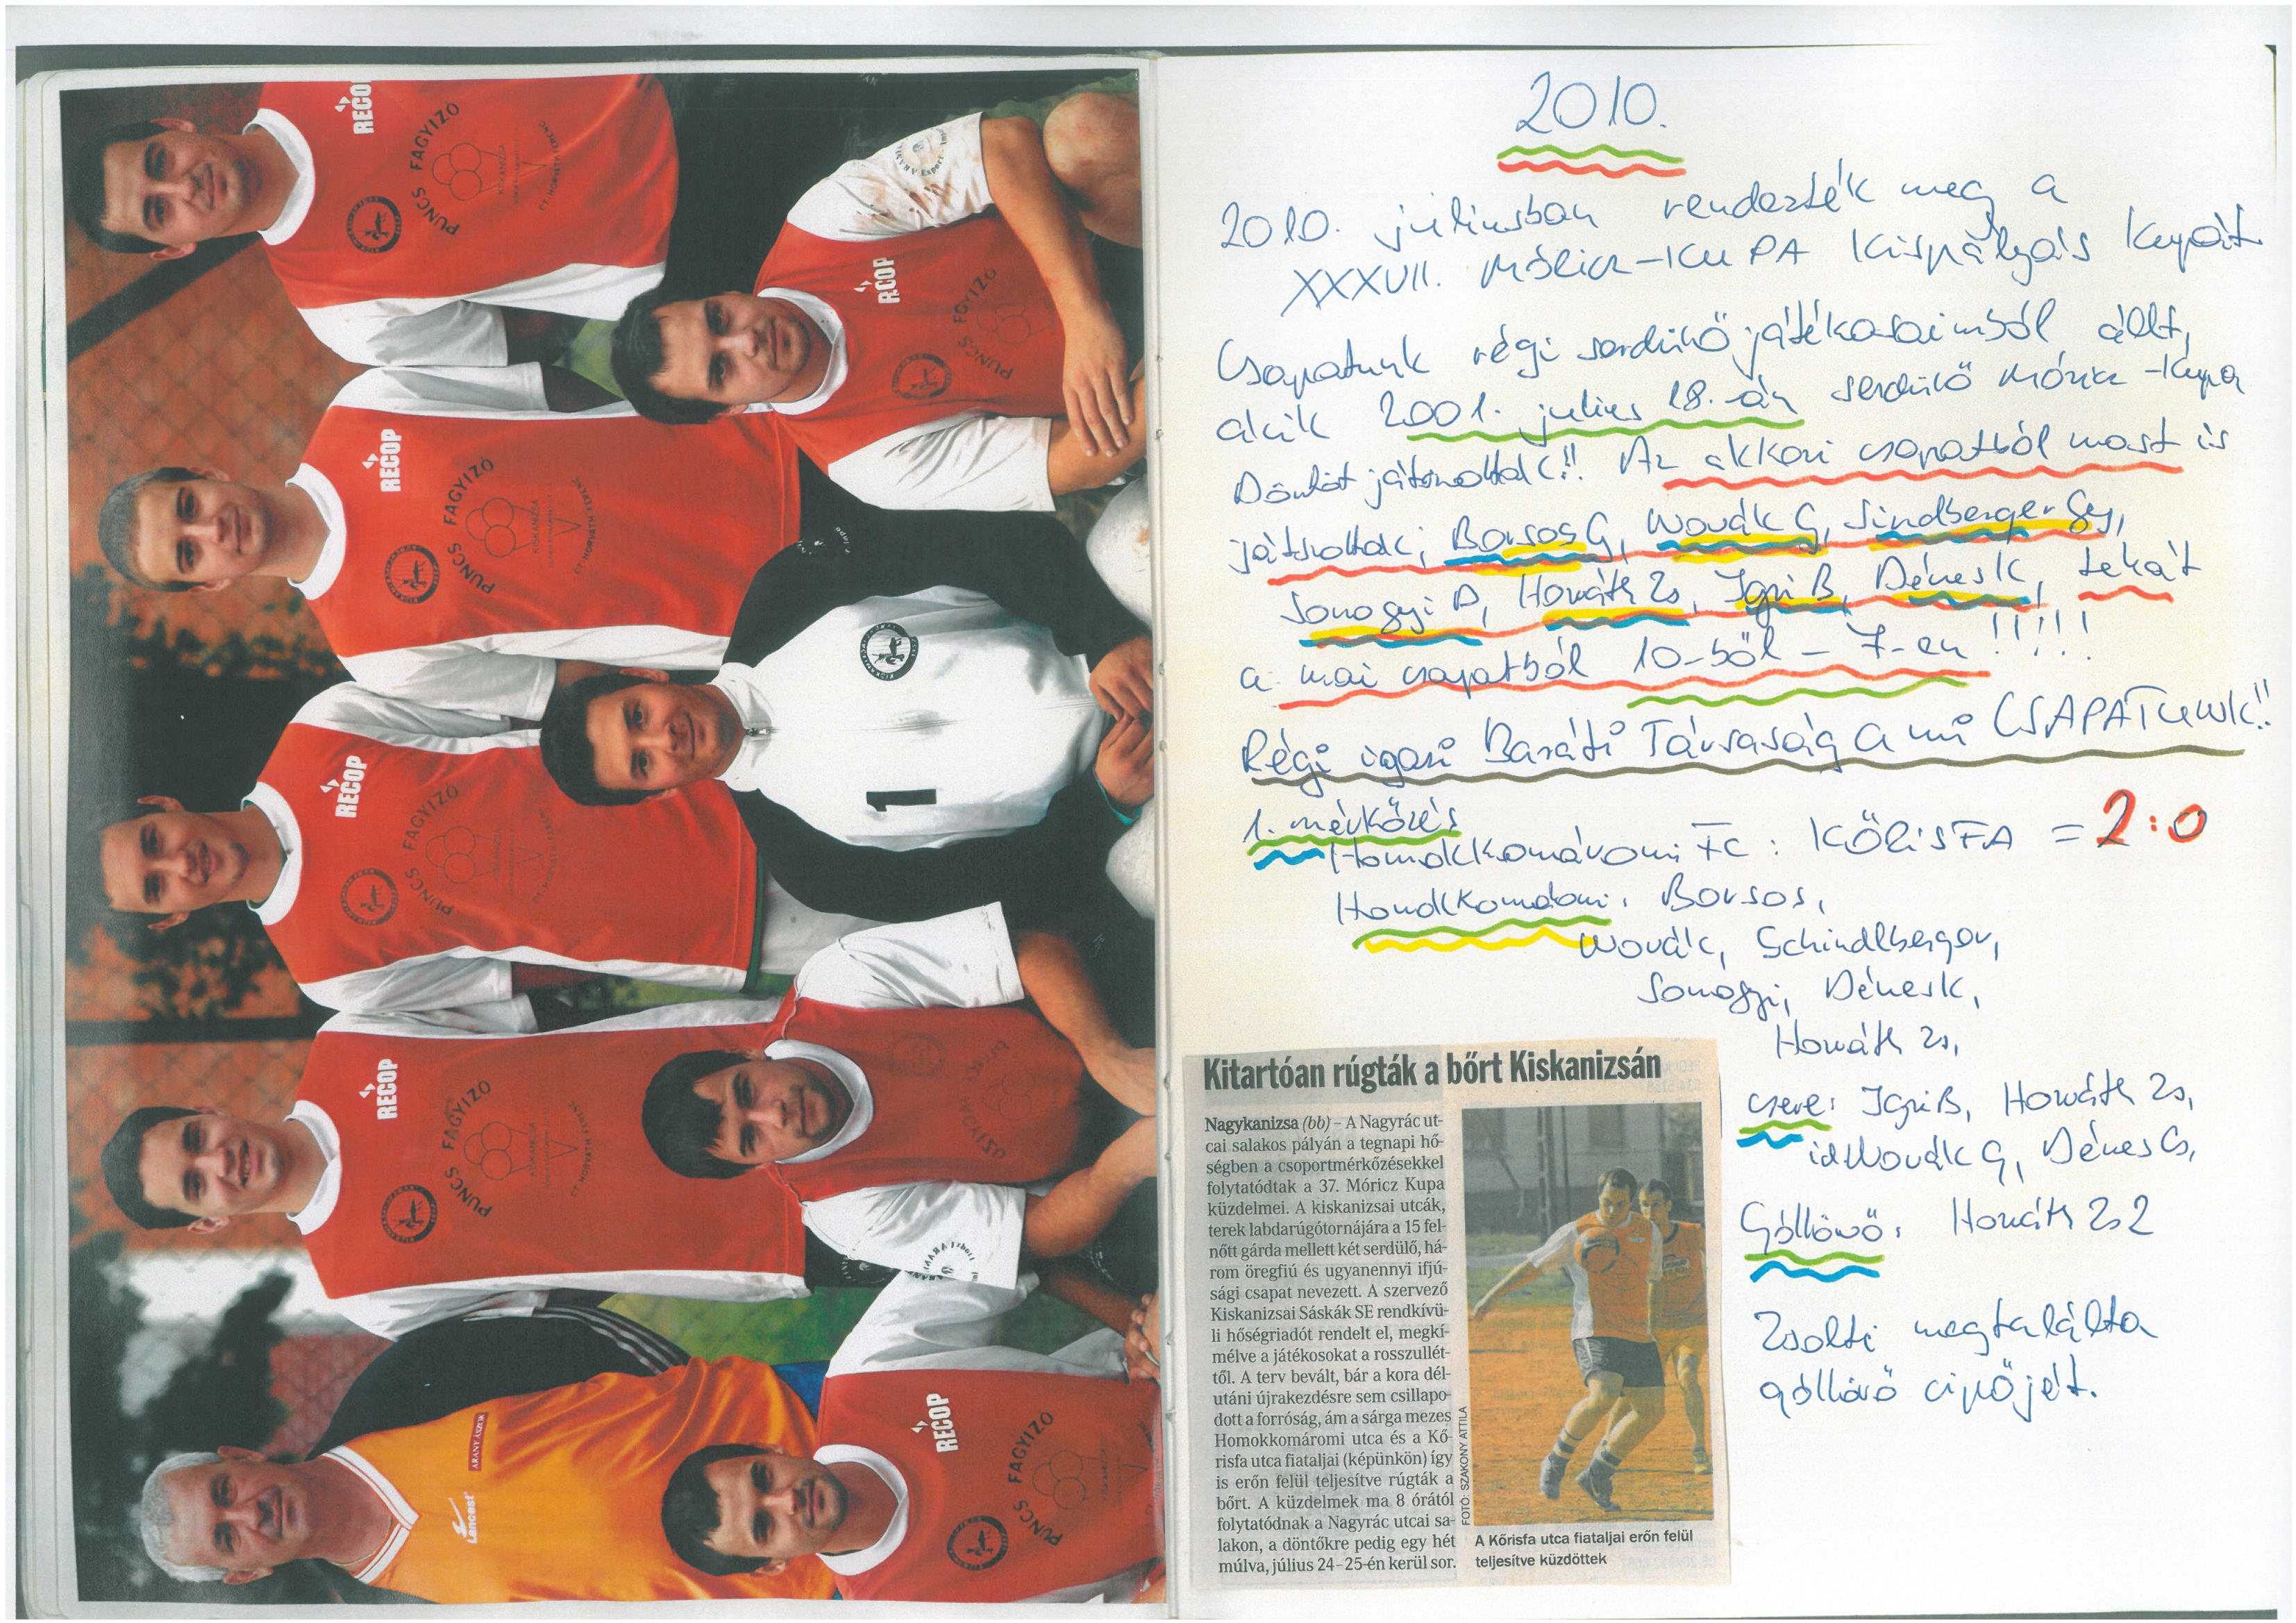 RECOP
PUNCS FAGYIZO
KISKANIZSA
RECOP
PUNCS FAGYIZO
KISKANIZSA
RECOP
PUNCS FAGYIZO
RECOP
PUNCS FAGYIZO
KISKANIZSA
RECOP
PUNCS FAGYIZO
1
Lancast
ARANY ÁSZOK
RECOP
PUNCS FAGYIZO
2010.
2010. júliusban rendezték meg a
XXXVII. MÓRICZ-KUPA Kispályás Kupát
Csapatunk régi serdülő játékosaimból állt,
akik 2001. julius 28.-án serdülő Móricz-Kupa
Döntőt játszottak!! Az akkori csapatból most is
játszottak; Borsos G, Novák G, Sindberger Gy,
Somogyi D, Horváth Zs, Igri B, Dénes K, tehát
a mai csapatból 10-ből - 7-en !!!!!
Régi igazi Baráti Társaság a mi CSAPATUNK!!
1. mérkőzés
Homokkomáromi FC : KŐRISFA = 2:0
Homokkomáromi: Borsos,
Novák, Schindlberger,
Somogyi, Dénes K,
Horváth Zs,
csere: Igri B, Horváth Zs,
id Novák G, Dénes Cs,
Góllövő: Horváth Zs 2
Zsolti megtalálta
góllövő cipőjét.
Kitartóan rúgták a bőrt Kiskanizsán
Nagykanizsa (bb) – A Nagyrác ut-
cai salakos pályán a tegnapi hő-
ségben a csoportmérkőzésekkel
folytatódtak a 37. Móricz Kupa
küzdelmei. A kiskanizsai utcák,
terek labdarúgótornájára a 15 fel-
nőtt gárda mellett két serdülő, há-
rom öregfiú és ugyanennyi ifjú-
sági csapat nevezett. A szervező
Kiskanizsai Sáskák SE rendkívü-
li hőségriadót rendelt el, megkí-
mélve a játékosokat a rosszullét-
től. A terv bevált, bár a kora dél-
utáni újrakezdésre sem csillapo-
dott a forróság, ám a sárga mezes
Homokkomáromi utca és a Kő-
risfa utca fiataljai (képünkön) így
is erőn felül teljesítve rúgták a
bőrt. A küzdelmek ma 8 órától
folytatódnak a Nagyrác utcai sa-
lakon, a döntőkre pedig egy hét
múlva, július 24–25-én kerül sor.
FOTÓ: SZAKONY ATTILA
A Kőrisfa utca fiataljai erőn felül
teljesítve küzdöttek